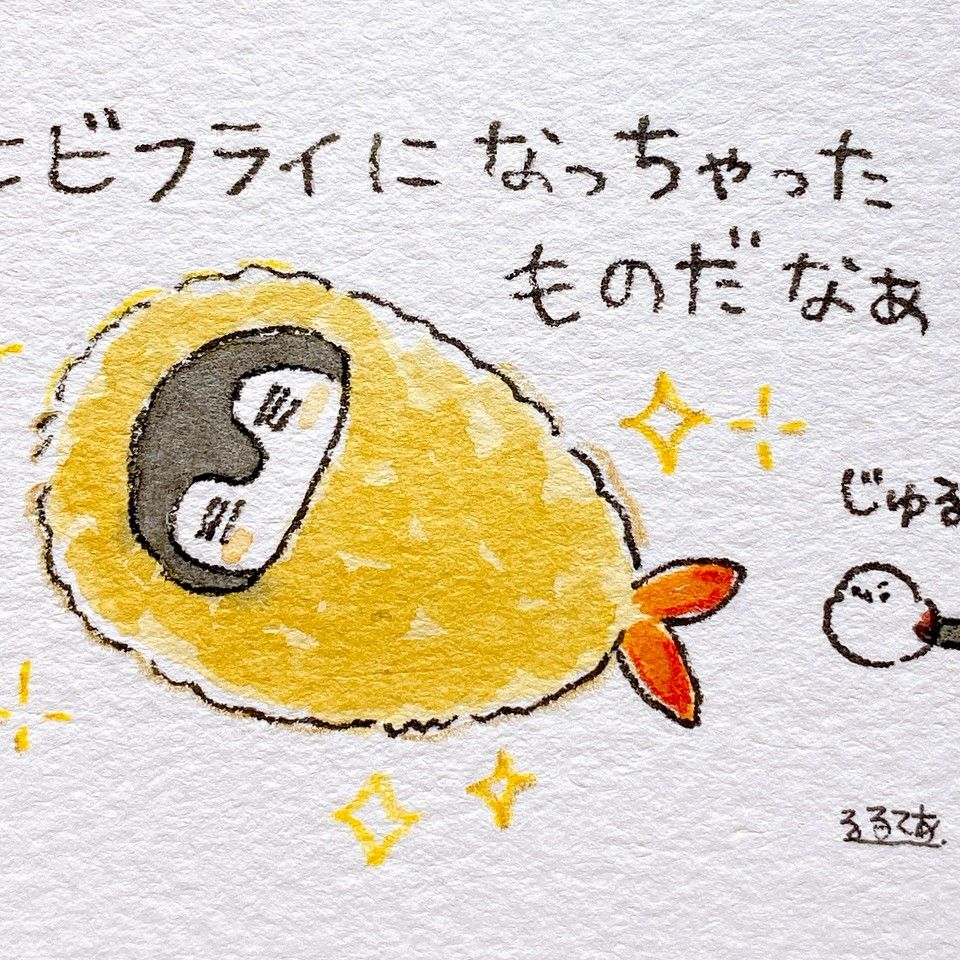 エビフライになっちゃった
ものだなあ
じゅる
るるてあ.